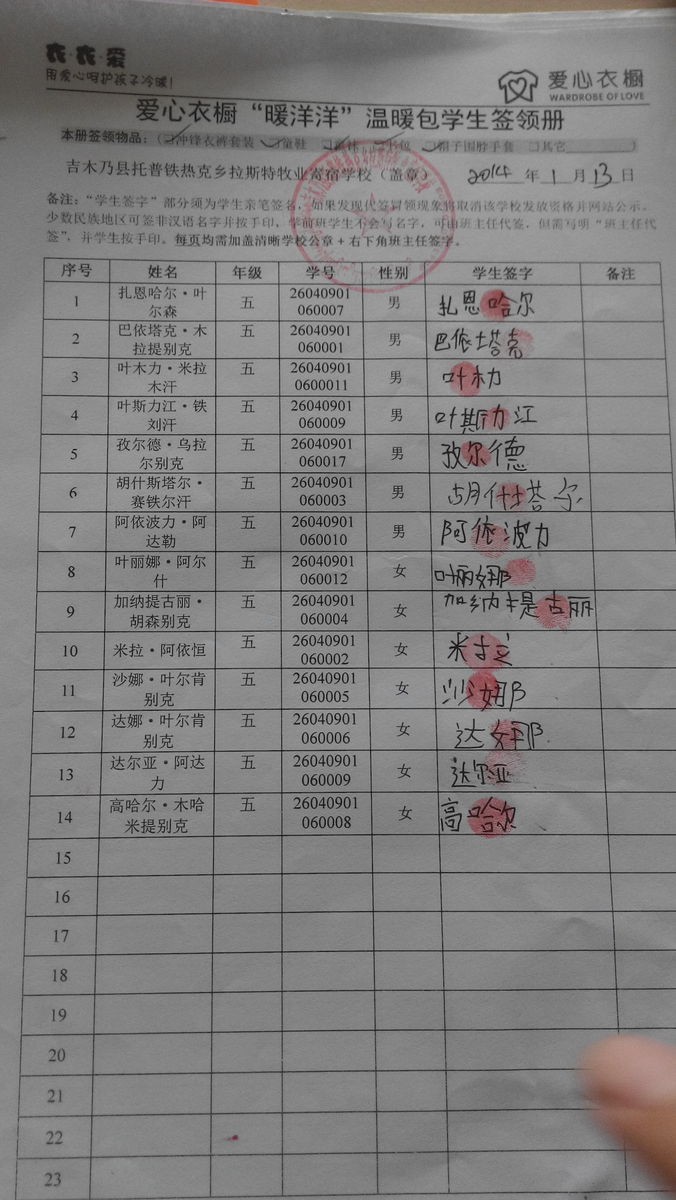 衣·衣·爱
用爱心呵护孩子冷暖!
爱心衣橱
WARDROBE OF LOVE
爱心衣橱“暖洋洋”温暖包学生签领册
本册签领物品：（☑冲锋衣裤套装 ☑童鞋 ☑ ☑书包 ☑帽子围脖手套 □其它 ）
吉木乃县托普铁热克乡拉斯特牧业寄宿学校（盖章） 2014 年 1 月 13 日
备注：“学生签字”部分须为学生亲笔签名，如果发现代签冒领现象将取消该学校发放资格并网站公示。
少数民族地区可签非汉语名字并按手印，学前班学生不会写名字，可由班主任代签，但需写明“班主任代
签”，并学生按手印。每页均需加盖清晰学校公章+右下角班主任签字。
序号 姓名 年级 学号 性别 学生签字 备注
1 扎恩哈尔·叶尔森 五 26040901060007 男 扎恩哈尔
2 巴依塔克·木拉提别克 五 26040901060001 男 巴依塔克
3 叶木力·米拉木汗 五 260409010600011 男 叶木力
4 叶斯力江·铁刘汗 五 26040901060009 男 叶斯力江
5 孜尔德·乌拉尔别克 五 26040901060017 男 孜尔德
6 胡什斯塔尔·赛铁尔汗 五 26040901060003 男 胡什塔尔
7 阿依波力·阿达勒 五 26040901060010 男 阿依波力
8 叶丽娜·阿尔什 五 26040901060012 女 叶丽娜
9 加纳提古丽·胡森别克 五 26040901060004 女 加纳提古丽
10 米拉·阿依恒 五 26040901060002 女 米拉
11 沙娜·叶尔肯别克 五 26040901060005 女 沙娜
12 达娜·叶尔肯别克 五 26040901060006 女 达娜
13 达尔亚·阿达力 五 26040901060009 女 达尔亚
14 高哈尔·木哈米提别克 五 26040901060008 女 高哈尔
15
16
17
18
19
20
21
22
23